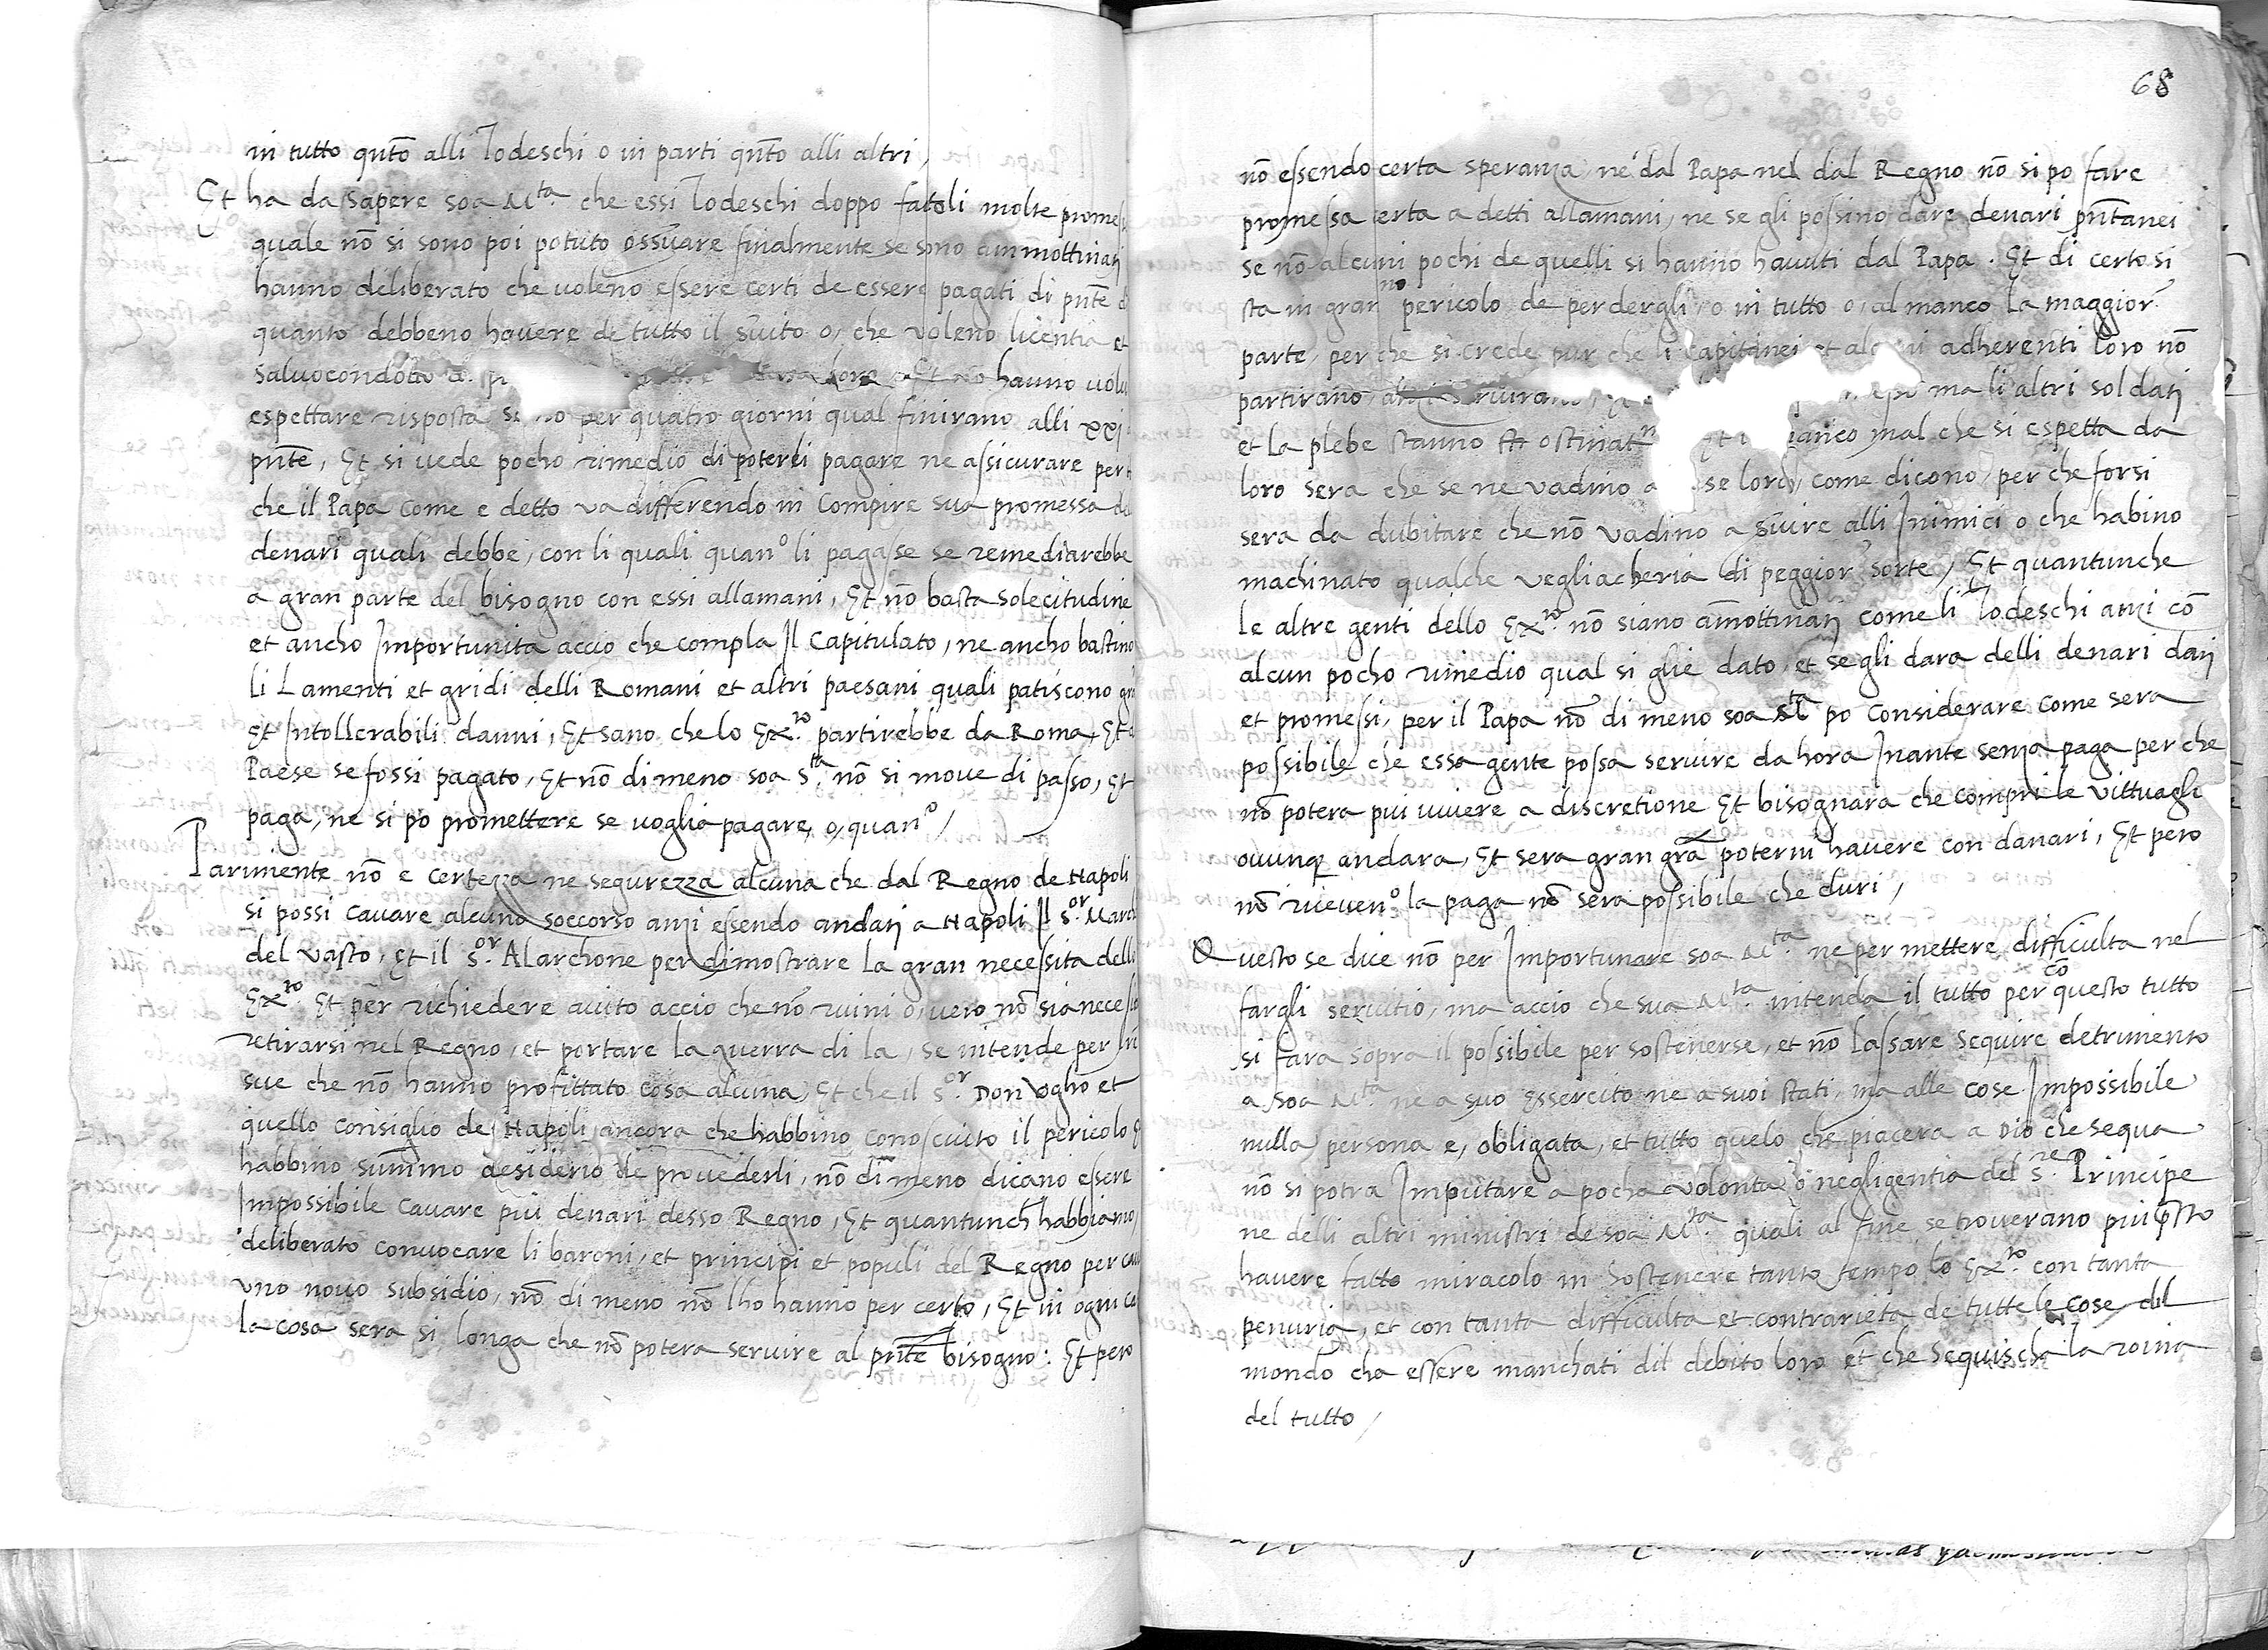 in tutto qnto alli Todeschi o in parti qnto alli altri,
Et ha da sapere soa M.ta che essi Todeschi doppo fatoli molte promes
quale nõ si sono poi potuto ossuare finalmente se sono ammottinati
hanno deliberato che voleno essere certi de essere pagati di pnte
quanto debbeno havere de tutto il suito o, che voleno licentia et
salvocondotto hanno
espettare risposta per quatro giorni qual finirano alli xxj
pnte, Et si vede pocho rimedio di poterli pagare ne assicurare per
che il Papa come e detto va differendo in compire sua promessa
denari quali debbe, con li quali quan.o li pagasse se remediarebbe
a gran parte del bisogno con essi allamani, Et nõ basta solecitudine
et ancho Importunita accio che compla Il Capitulato, ne ancho bastino
li Lamenti et gridi delli Romani et altri paesani quali patiscono
Et Intollerabili danni, Et sano che lo Ex.to partirebbe da Roma, Et
Paese se fossi pagato, Et nõ di meno soa S.ta nõ si move di passo, Et
paga, ne si po promettere se voglia pagare, o, quan.o /
Parimente nõ e certezza ne segurezza alcuna che dal Regno de Napoli
si possi cavare alcuno soccorso anzi essendo andati a Napoli Il S.or March
del Vasto, Et il S.or Alarchone per dimostrare la gran necessita dello
Ex.to Et per richiedere aiuto accio che nõ ruini o, vero nõ sia
retirarsi nel Regno, et portare la guerra di la, se intende per
sue che nõ hanno profittato cosa alcuna, Et che il S.or Don Ugho et
quello consiglio de Napoli ancora che habbino conosciuto il pericolo
habbino summo desiderio de provederli, nõ di meno dicano essere
Impossibile cavare piu denari desso Regno, Et quantunch habbiano
deliberato convocare li baroni, et principi et populi del Regno per
uno novo subsidio, nõ di meno nõ lho hanno per certo, Et in ogni
la cosa sera si longa che nõ potera servire al pnte bisogno: Et pero
68
nõ essendo certa speranza ne dal Papa nel dal Regno nõ si po fare
promessa certa a detti allamani, ne se gli possino dare denari pntanei
se nõ alcuni pochi de quelli si hanno havuti dal Papa. Et di certo si
sta in gran.no pericolo de perdergli, o in tutto o, al manco la maggior
parte, per che si crede pur che li capitanei et adherenti loro nõ
partirano, ma li altri soldati
et la plebe stanno ostinat mal che si espetta da
loro sera che se ne vadino a se loro, come dicono, per che forsi
sera da dubitare che nõ vadino a suire alli Inimici o che habino
machinato qualche vegliacheria di peggior sorte, Et quantunche
le altre genti dello Ex.to nõ siano amottinati come li Todeschi anzi cõ
alcun pocho rimedio qual si glie dato, et se gli dara delli denari dati
et promessi, per il Papa nõ di meno soa M.ta po considerare come sera
possibile che essa gente possa servire da hora Inante senza paga per che
nõ potera piu vivere a discretione Et bisognara che compri le vittuagle
ovunq andara, Et sera gran gra poterni havere con danari, Et pero
nõ riceven.o la paga nõ sera possibile che duri,
Questo se dice nõ per Importunare soa M.ta ne per mettere difficulta nel
fargli servitio, ma accio che sua M.ta intenda il tutto per cõ questo tutto
si fara sopra il possibile per sostenerse, et nõ lassare sequire detrimento
a soa M.ta ne a suo Essercito ne a suoi stati, ma alle cose Impossibile
nulla persona e, obligata, et tutto quelo che piacera a Dio che sequa
nõ si potra Imputare a pocha volonta o negligentia del S.re Principe
ne delli altri ministri de soa M.ta quali al fine se troverano piu psto
havere fatto miracolo in Sostenere tanto tempo lo Ex.to con tanta
penuria, et con tanta difficulta et contrarieta de tutte le cose dil
mondo cha essere manchati dil debito loro et che sequischi la roina
del tutto /